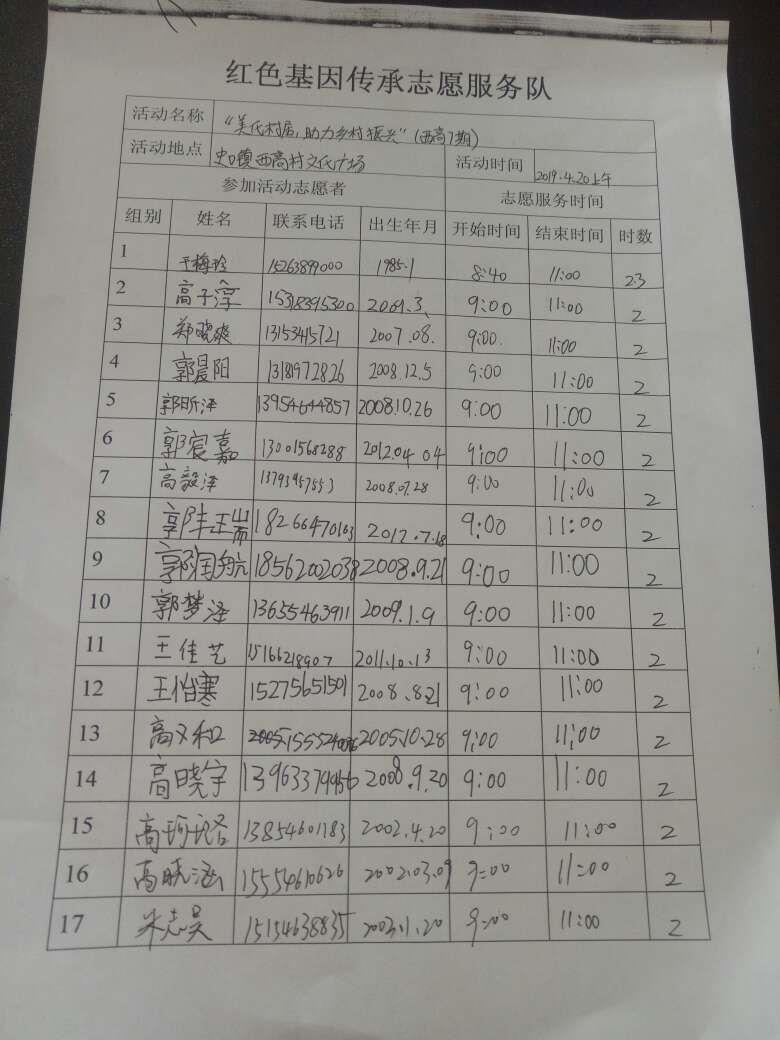 红色基因传承志愿服务队
活动名称 “美化村居,助力乡村振兴”(西高7期)
活动地点 史口镇西高村文化广场 活动时间 2019.4.20上午
参加活动志愿者 志愿服务时间
组别 姓名 联系电话 出生年月 开始时间 结束时间 时数
1 于梅珍 15263899000 1985.1 8:40 11:00 2.3
2 高子淳 15318395300 2009.3. 9:00 11:00 2
3 郑晓爽 13153415721 2007.08. 9:00. 11:00 2
4 郭晨阳 13181972826 2008.12.5 9:00 11:00 2
5 郭昕泽 13954644857 2008.10.26 9:00 11:00 2
6 郭宸嘉 13001568288 2012.04.04 9:00 11:00 2
7 高毅泽 2008.07.28 9:00 11:00 2
8 18266470163 2012.7.18 9:00 11:00 2
9 18562002038 2008.9.21 9:00 11:00 2
10 郭梦泽 13655463911 2009.1.9 9:00 11:00 2
11 王佳艺 15166218907 2011.10.13 9:00 11:00 2
12 15275651501 2008.8.21 9:00 11:00 2
13 高文和 2005.10.28 9:00 11:00 2
14 高晓宇 2008.9.20 9:00 11:00 2
15 高珂珞 13854601783 2002.4.20 9:00 11:00 2
16 高晓涵 15554610626 2002.03.09 9:00 11:00 2
17 朱志昊 15154638835 2003.1.20 9:00 11:00 2